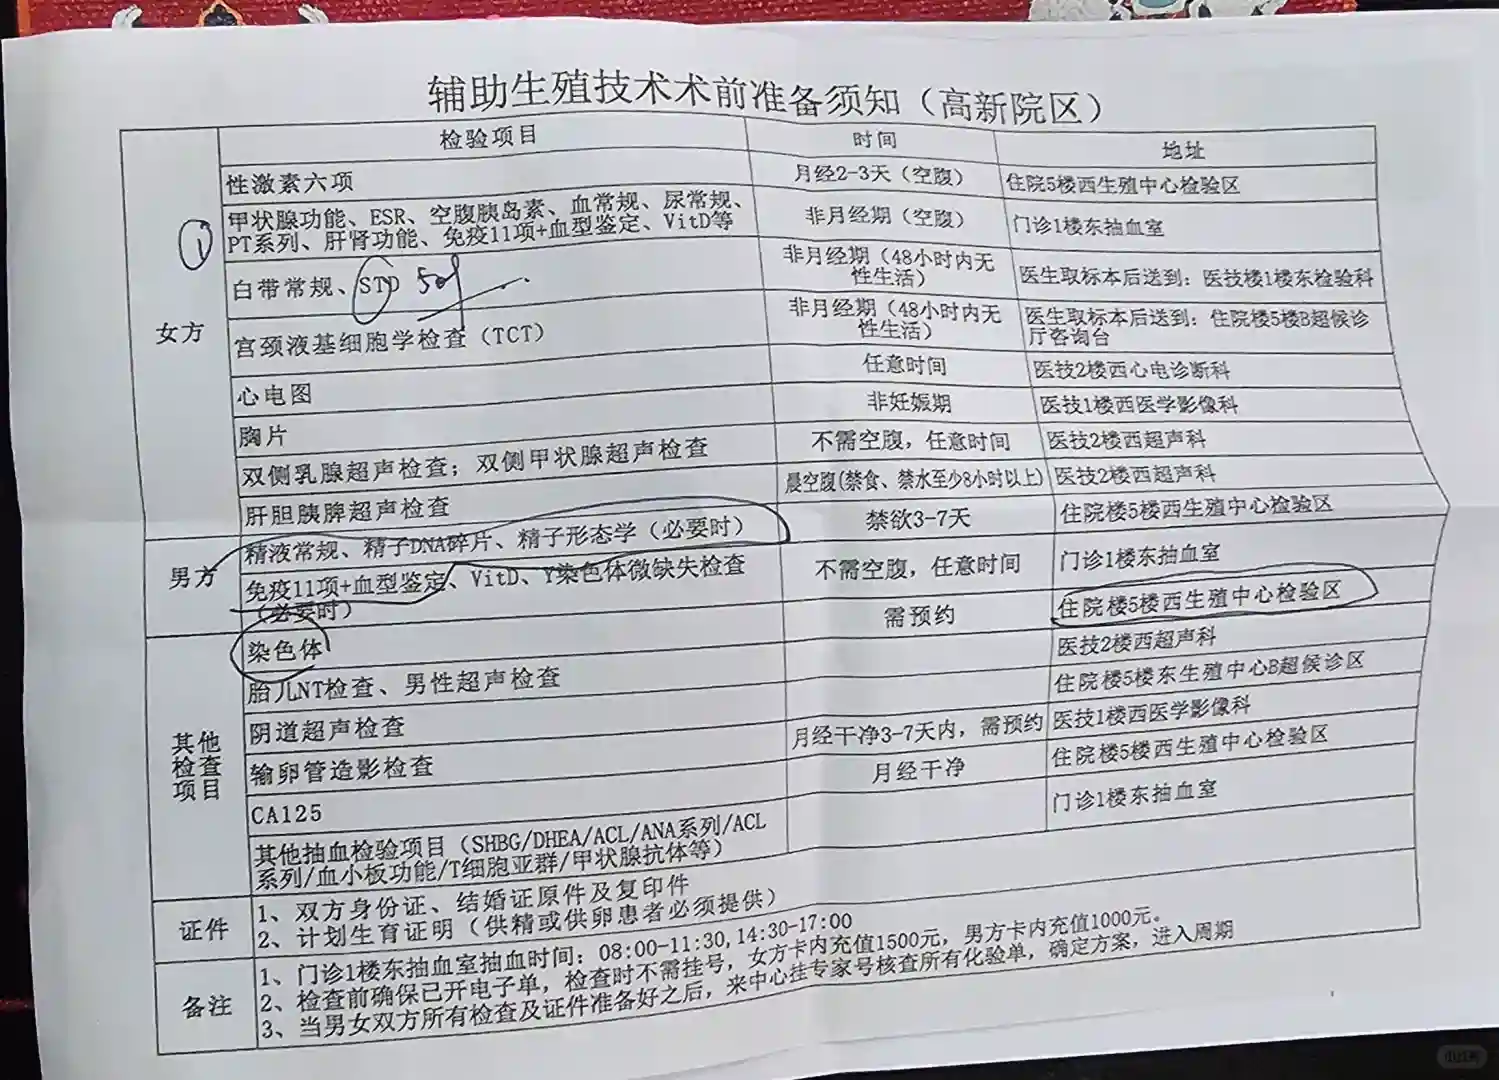 辅助生殖技术术前准备须知（高新院区）
检验项目 时间 地址
女方
①
性激素六项 月经2-3天（空腹） 住院5楼西生殖中心检验区
甲状腺功能、ESR、空腹胰岛素、血常规、尿常规、
PT系列、肝肾功能、免疫11项+血型鉴定、VitD等
非月经期（空腹） 门诊1楼东抽血室
白带常规、STD
非月经期（48小时内无
性生活）
医生取标本后送到：医技楼1楼东检验科
宫颈液基细胞学检查（TCT）
非月经期（48小时内无
性生活）
医生取标本后送到：住院楼5楼B超候诊
厅咨询台
心电图 任意时间 医技2楼西心电诊断科
胸片 非妊娠期 医技1楼西医学影像科
双侧乳腺超声检查；双侧甲状腺超声检查 不需空腹，任意时间 医技2楼西超声科
肝胆胰脾超声检查 晨空腹(禁食、禁水至少8小时以上) 医技2楼西超声科
男方
精液常规、精子DNA碎片、精子形态学（必要时） 禁欲3-7天 住院楼5楼西生殖中心检验区
免疫11项+血型鉴定、VitD、Y染色体微缺失检查
（必要时）
不需空腹，任意时间 门诊1楼东抽血室
其他
检查
项目
染色体 需预约 住院楼5楼西生殖中心检验区
胎儿NT检查、男性超声检查 医技2楼西超声科
阴道超声检查 住院楼5楼东生殖中心B超候诊区
输卵管造影检查 月经干净3-7天内，需预约 医技1楼西医学影像科
CA125 月经干净 住院楼5楼西生殖中心检验区
其他抽血检验项目（SHBG/DHEA/ACL/ANA系列/ACL
系列/血小板功能/T细胞亚群/甲状腺抗体等）
门诊1楼东抽血室
证件
1、双方身份证、结婚证原件及复印件
2、计划生育证明（供精或供卵患者必须提供）
备注
1、门诊1楼东抽血室抽血时间：08:00-11:30,14:30-17:00
2、检查前确保已开电子单，检查时不需挂号，女方卡内充值1500元，男方卡内充值1000元。
3、当男女双方所有检查及证件准备好之后，来中心挂专家号核查所有化验单，确定方案，进入周期
小红书